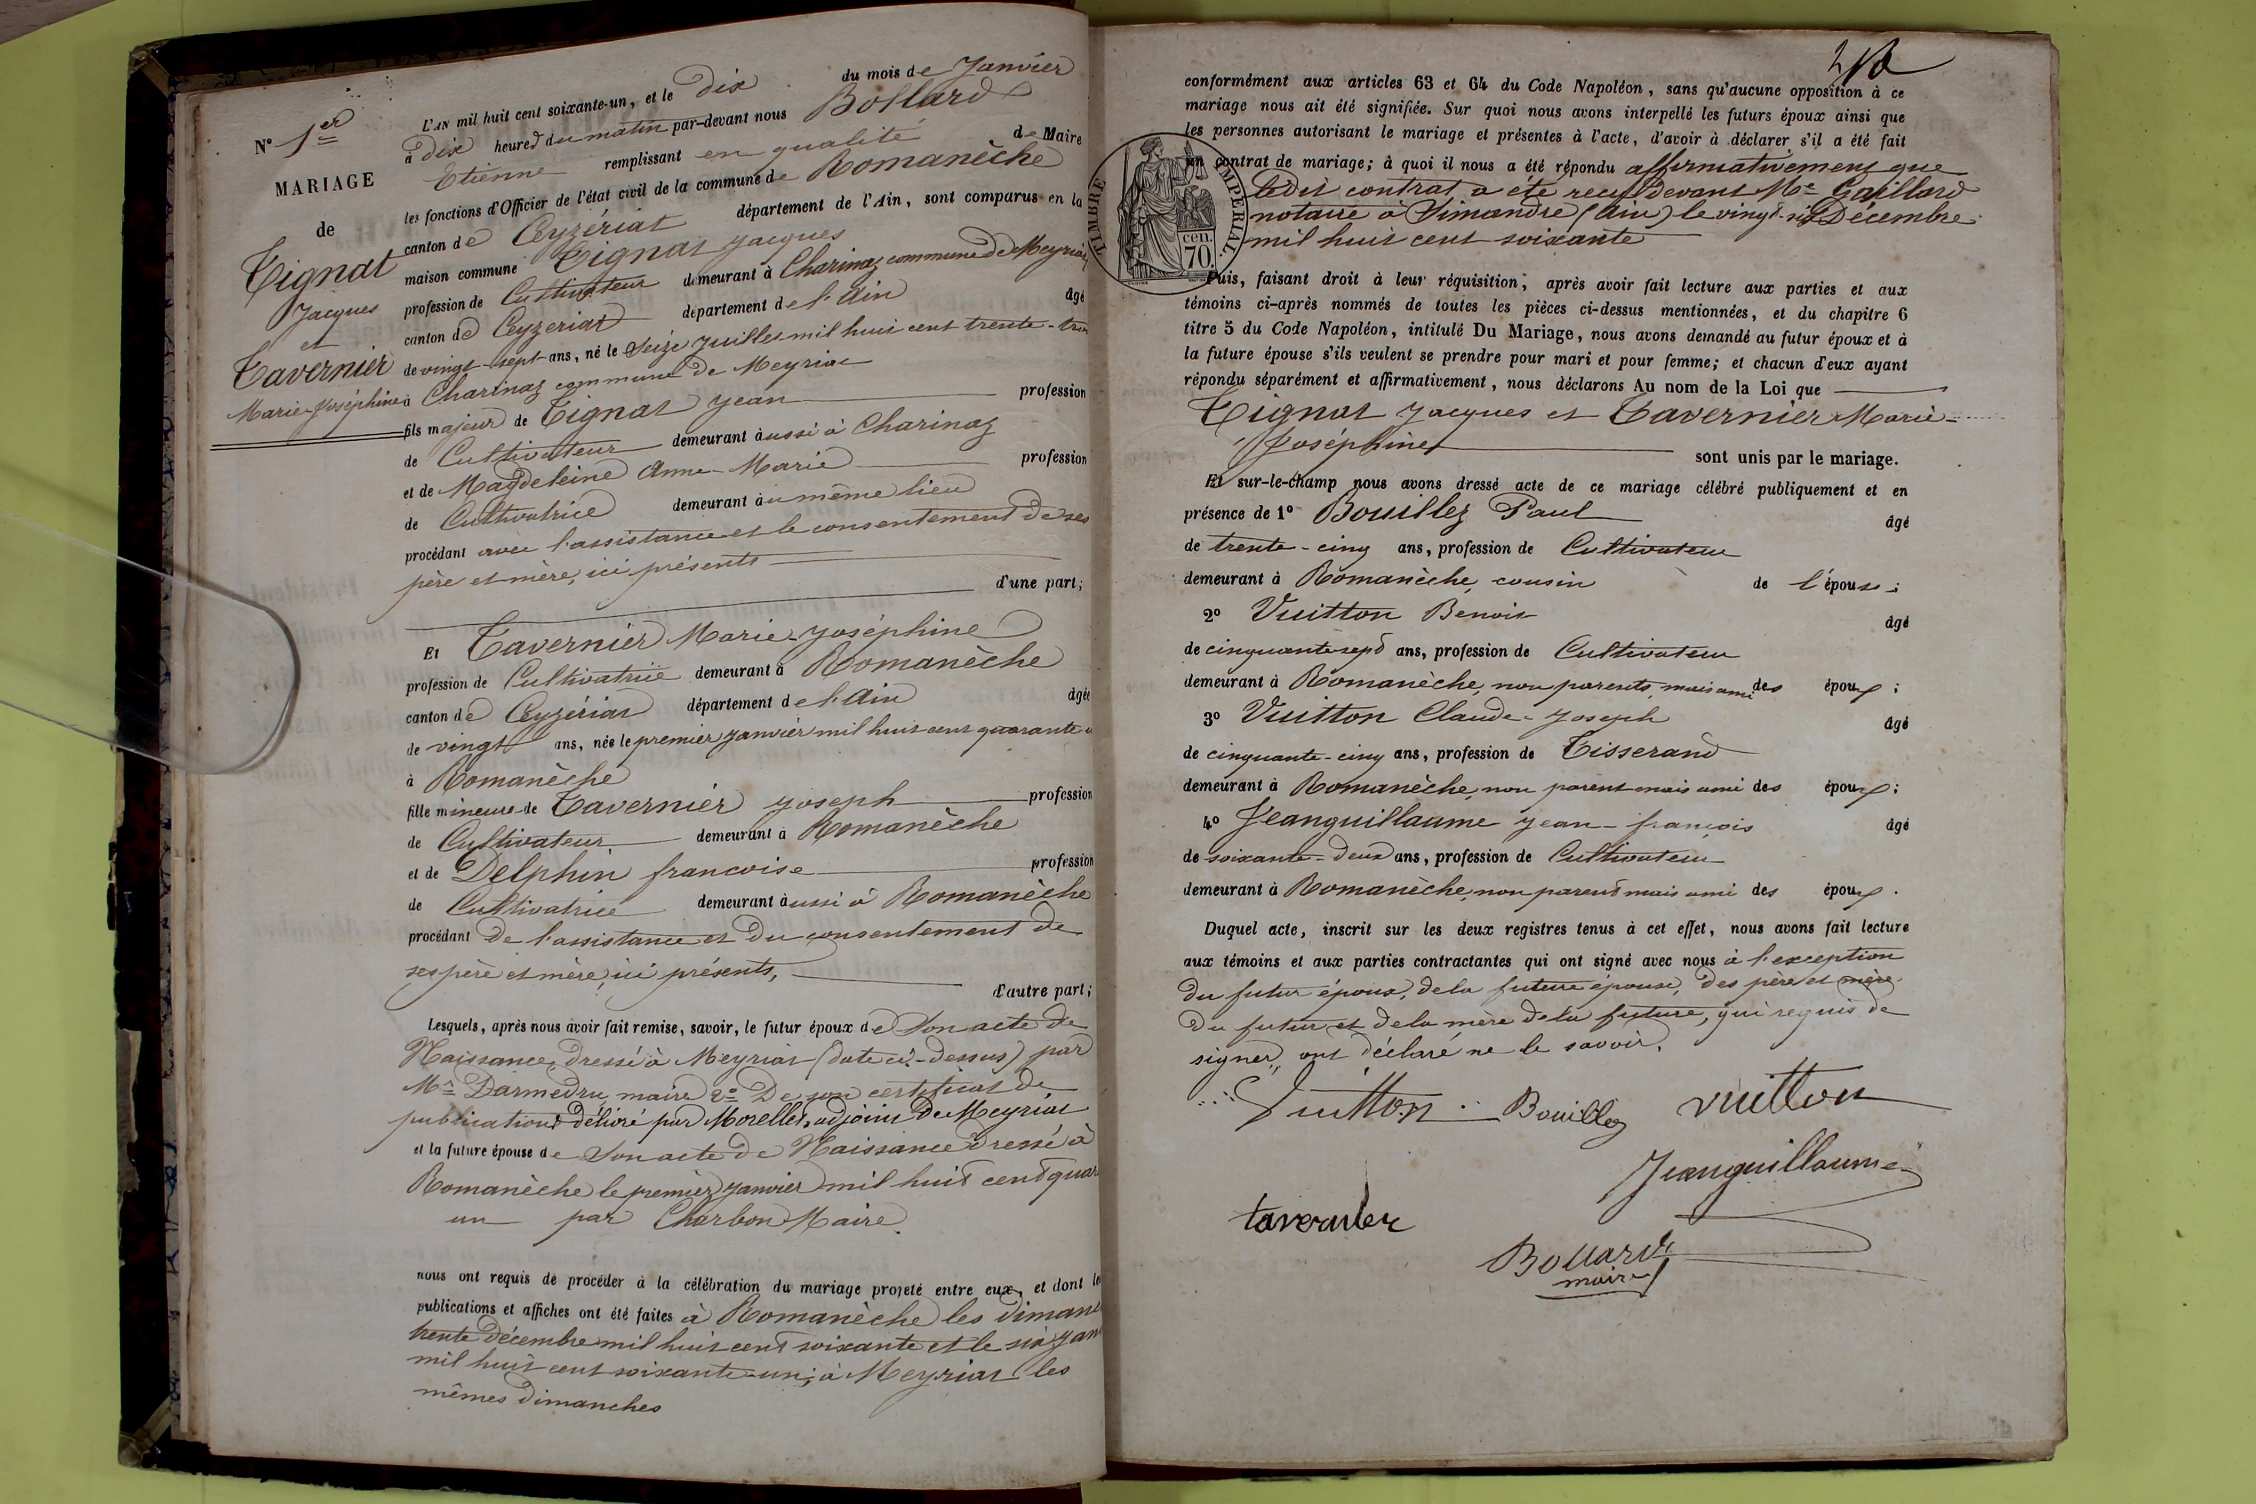 N° 1er
MARIAGE
de
Tignat
Jacques
et
Tavernier
Marie-Joséphine
L'AN mil huit cent soixante-un, et le dix du mois de Janvier
à dix heures du matin par-devant nous Bollard
Etienne remplissant en qualité de Maire
les fonctions d'Officier de l'état civil de la commune de Romanèche
canton de Ceyzériat département de l'Ain, sont comparus en la
maison commune Tignat Jacques
profession de Cultivateur demeurant à Charinaz commune de Meyriat
canton de Ceyzeriat département de l'Ain âgé
de vingt-sept ans, né le Seize Juillet mil huit cent trente-trois
à Charinaz commune de Meyriat
fils majeur de Tignat Jean profession
de Cultivateur demeurant aussi à Charinaz
et de Magdeleine Anne-Marie profession
de Cultivatrice demeurant au même lieu
procédant avec l'assistance et le consentement de ses
père et mère, ici présents
d'une part;
Et Tavernier Marie-Joséphine
profession de Cultivatrice demeurant à Romanèche
canton de Ceyzériat département de l'Ain âgée
de vingt ans, née le premier Janvier mil huit cent quarante u
à Romanèche
fille mineure de Tavernier Joseph profession
de Cultivateur demeurant à Romanèche
et de Delphin francoise profession
de Cultivatrice demeurant aussi à Romanèche
procédant de l'assistance et du consentement de
ses père et mère, ici présents,
d'autre part;
Lesquels, après nous avoir fait remise, savoir, le futur époux de Son acte de
Naissance, dressé à Meyriat (date ci-dessus) par
Mr Darmedru, maire 2° De son certificat de
publications délivré par Morellet, adjoint De Meyriat
et la future épouse de Son acte de Naissance dressé à
Romanèche le premier Janvier mil huit cent quar
un par Charbon Maire.
nous ont requis de procéder à la célébration du mariage projeté entre eux, et dont le
publications et affiches ont été faites à Romanèche les dimanc
trente décembre mil huit cent soixante et le six Janv
mil huit cent soixante-un; à Meyriat les
mêmes dimanches
conformément aux articles 63 et 64 du Code Napoléon, sans qu'aucune opposition à ce
mariage nous ait été signifiée. Sur quoi nous avons interpellé les futurs époux ainsi que
les personnes autorisant le mariage et présentes à l'acte, d'avoir à déclarer s'il a été fait
un contrat de mariage; à quoi il nous a été répondu affirmativement que
ledit contrat a été reçu Devant Me Gaillard
notaire à Simandre (Ain) le vingt-six Décembre
mil huit cent soixante
TIMBRE IMPERIAL
cen.
70.
Puis, faisant droit à leur réquisition, après avoir fait lecture aux parties et aux
témoins ci-après nommés de toutes les pièces ci-dessus mentionnées, et du chapitre 6
titre 5 du Code Napoléon, intitulé Du Mariage, nous avons demandé au futur époux et à
la future épouse s'ils veulent se prendre pour mari et pour femme; et chacun d'eux ayant
répondu séparément et affirmativement, nous déclarons Au nom de la Loi que
Tignat Jacques et Tavernier Marie-
Joséphine
sont unis par le mariage.
Et sur-le-champ nous avons dressé acte de ce mariage célébré publiquement et en
présence de 1° Bouillez Paul âgé
de trente-cinq ans, profession de Cultivateur
demeurant à Romanèche, cousin de l'épouse;
2° Vuitton Benoit âgé
de cinquante sept ans, profession de Cultivateur
demeurant à Romanèche, non parents, mais ami des époux;
3° Vuitton Claude-Joseph âgé
de cinquante-cinq ans, profession de Tisserand
demeurant à Romanèche, non parent mais ami des époux;
4° Jeanguillaume Jean-françois âgé
de soixante-deux ans, profession de Cultivateur
demeurant à Romanèche, non parent mais ami des époux.
Duquel acte, inscrit sur les deux registres tenus à cet effet, nous avons fait lecture
aux témoins et aux parties contractantes qui ont signé avec nous à l'exception
du futur époux, de la future épouse, des père et mère
du futur et de la mère de la future, qui requis de
signer, ont déclaré ne le savoir.
Vuitton Bouillez vuitton
Jeanguillaume
tavernier
Bollard
maire